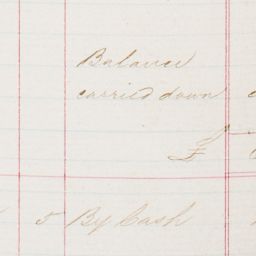 Balance
carried down
£
5 By Cash